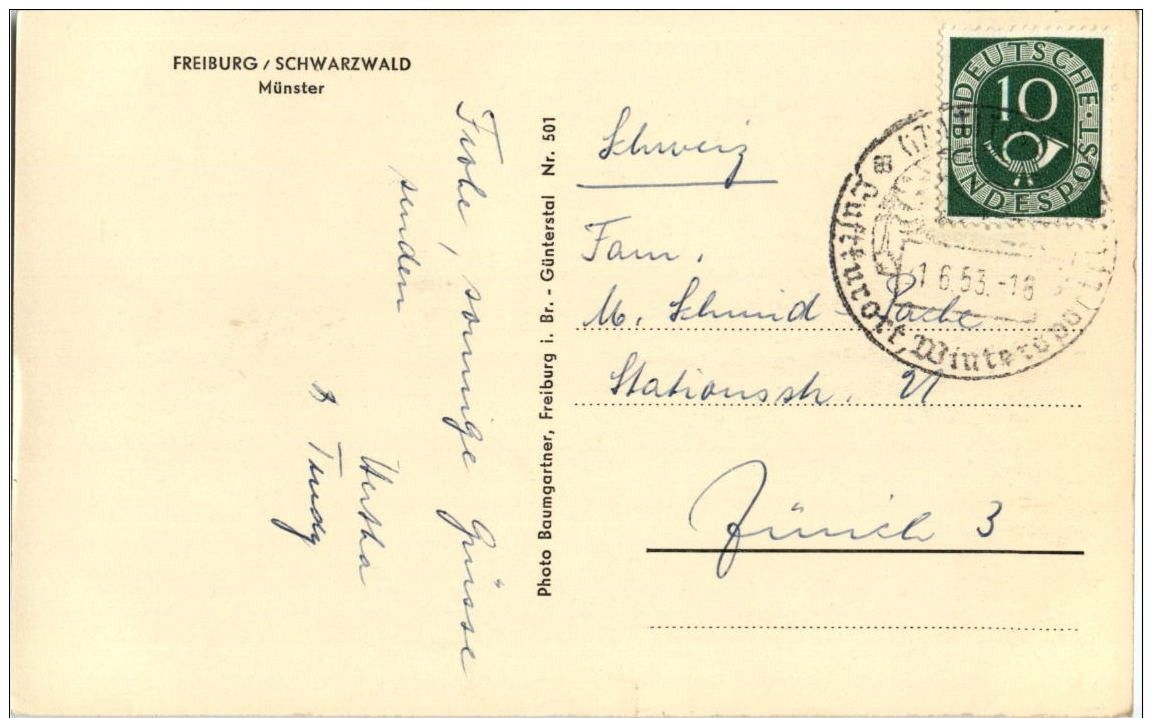 FREIBURG / SCHWARZWALD
Münster
Frohe, sonnige Grüsse
senden
Hertha
& Trudy
Photo Baumgartner, Freiburg i. Br. - Günterstal Nr. 501
DEUTSCHE
BUNDESPOST
10
Luftkurort, Wintersport
1 6.53.-18
Schweiz
Fam.
M. Schmid
Stationsstr. 21
Zürich 3